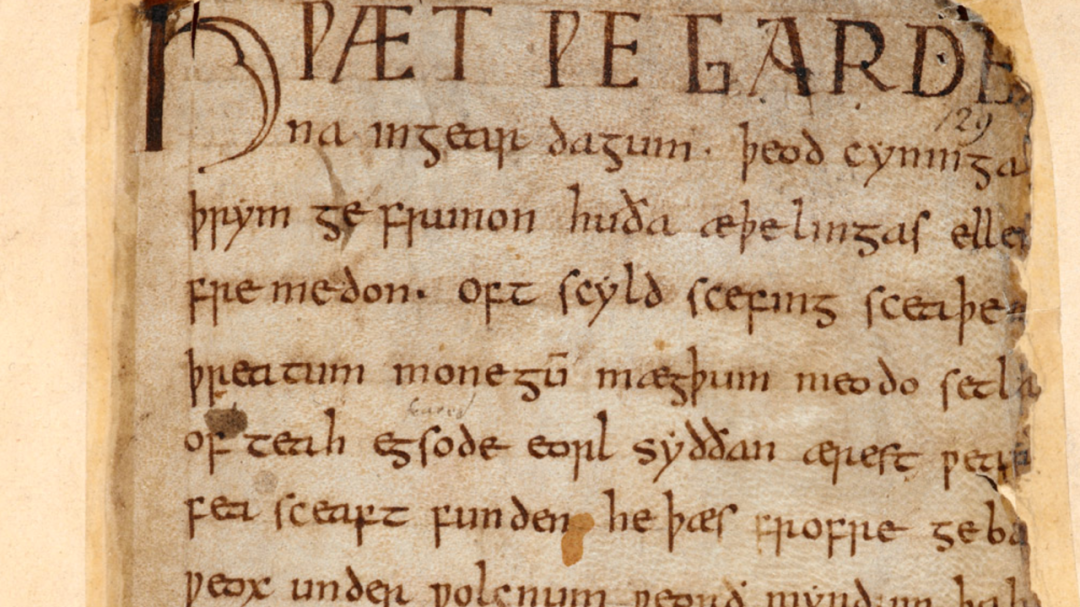 HǷÆT ǷE GARDE
129
na ingear dagum. þeod cyninga
þrym ge frunon huða æþelingas ellen
fremedon. oft scyld scefing sceaþe
þreatum monegū mægþum meodo setla
of teah egsode eorl syððan ærest ƿear
fea sceaft funden he þæs frofre geba
ƿeox under ƿolcnum ƿeorð mynd um